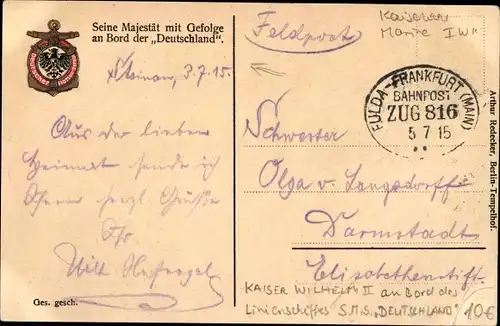 Seine Majestät mit Gefolge
an Bord der „Deutschland".
Deutscher
Steinau, 3.7.15.
Aus der lieben
Heimat sende ich
Ihnen herzl. Grüße
Ihr
Feldpost
Kaiserl.
Marine I W"
FULDA-FRANKFURT (MAIN)
BAHNPOST
ZUG 816
5 7 15
Schwester
Olga v. Langsdorff
Darmstadt
Elisabethenstift.
KAISER WILHELM II an Bord des
Linienschiffes S.M.S. „DEUTSCHLAND"
10€
Ges. gesch.
Arthur Redecker, Berlin-Tempelhof.